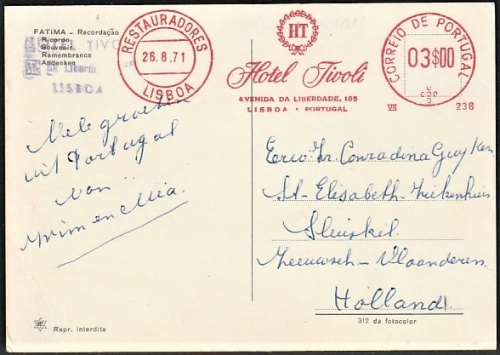 FATIMA - Recordação
Ricordo
Souvenir
Remembrance
Andenken
HOTEL TIVOLI
Av. da Liberdade
LISBOA
RESTAURADORES
26.8.71
LISBOA
HT
Hotel Tivoli
AVENIDA DA LIBERDADE, 185
LISBOA - PORTUGAL
CORREIO DE PORTUGAL
03$00
VII
236
Vele groeten
uit Portugal
van
Wim en Mia.
Eerw. Zr. Conradina Guyken
St-Elisabeth-Ziekenhuis
Sluiskil.
Zeeuwsch-Vlaanderen.
Holland.
Repr. interdita
312 da fotocolor